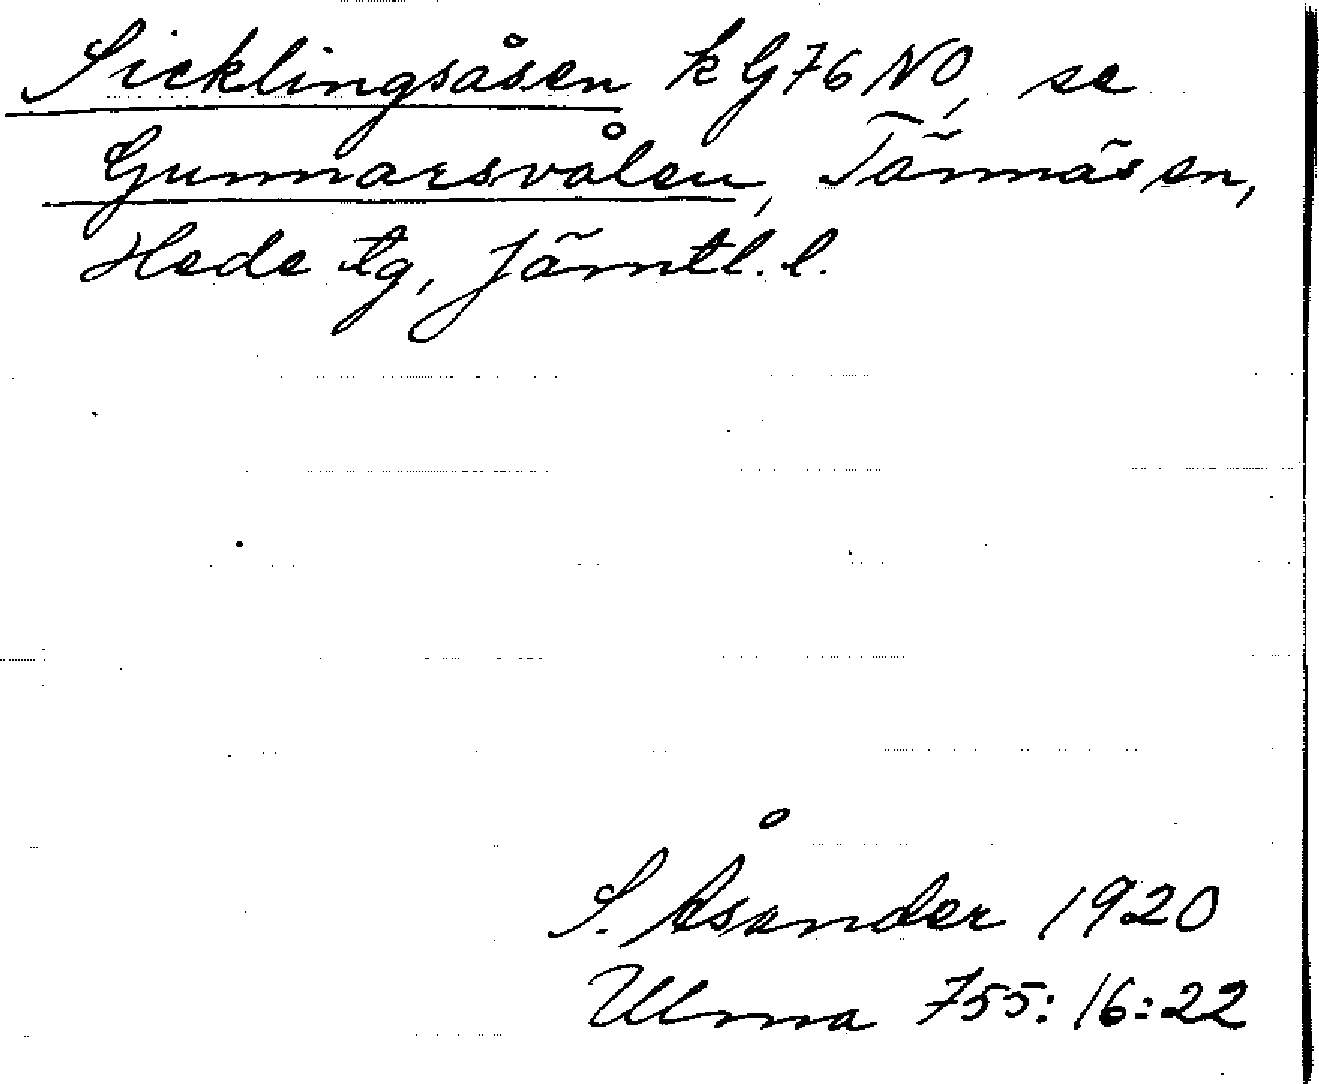 Sicklingsåsen kG76NO, se
Gunnarsvålen, Tännäs sn,
Hede tg, Jämtl. l.
S. Åsander 1920
Ulma 755:16:22